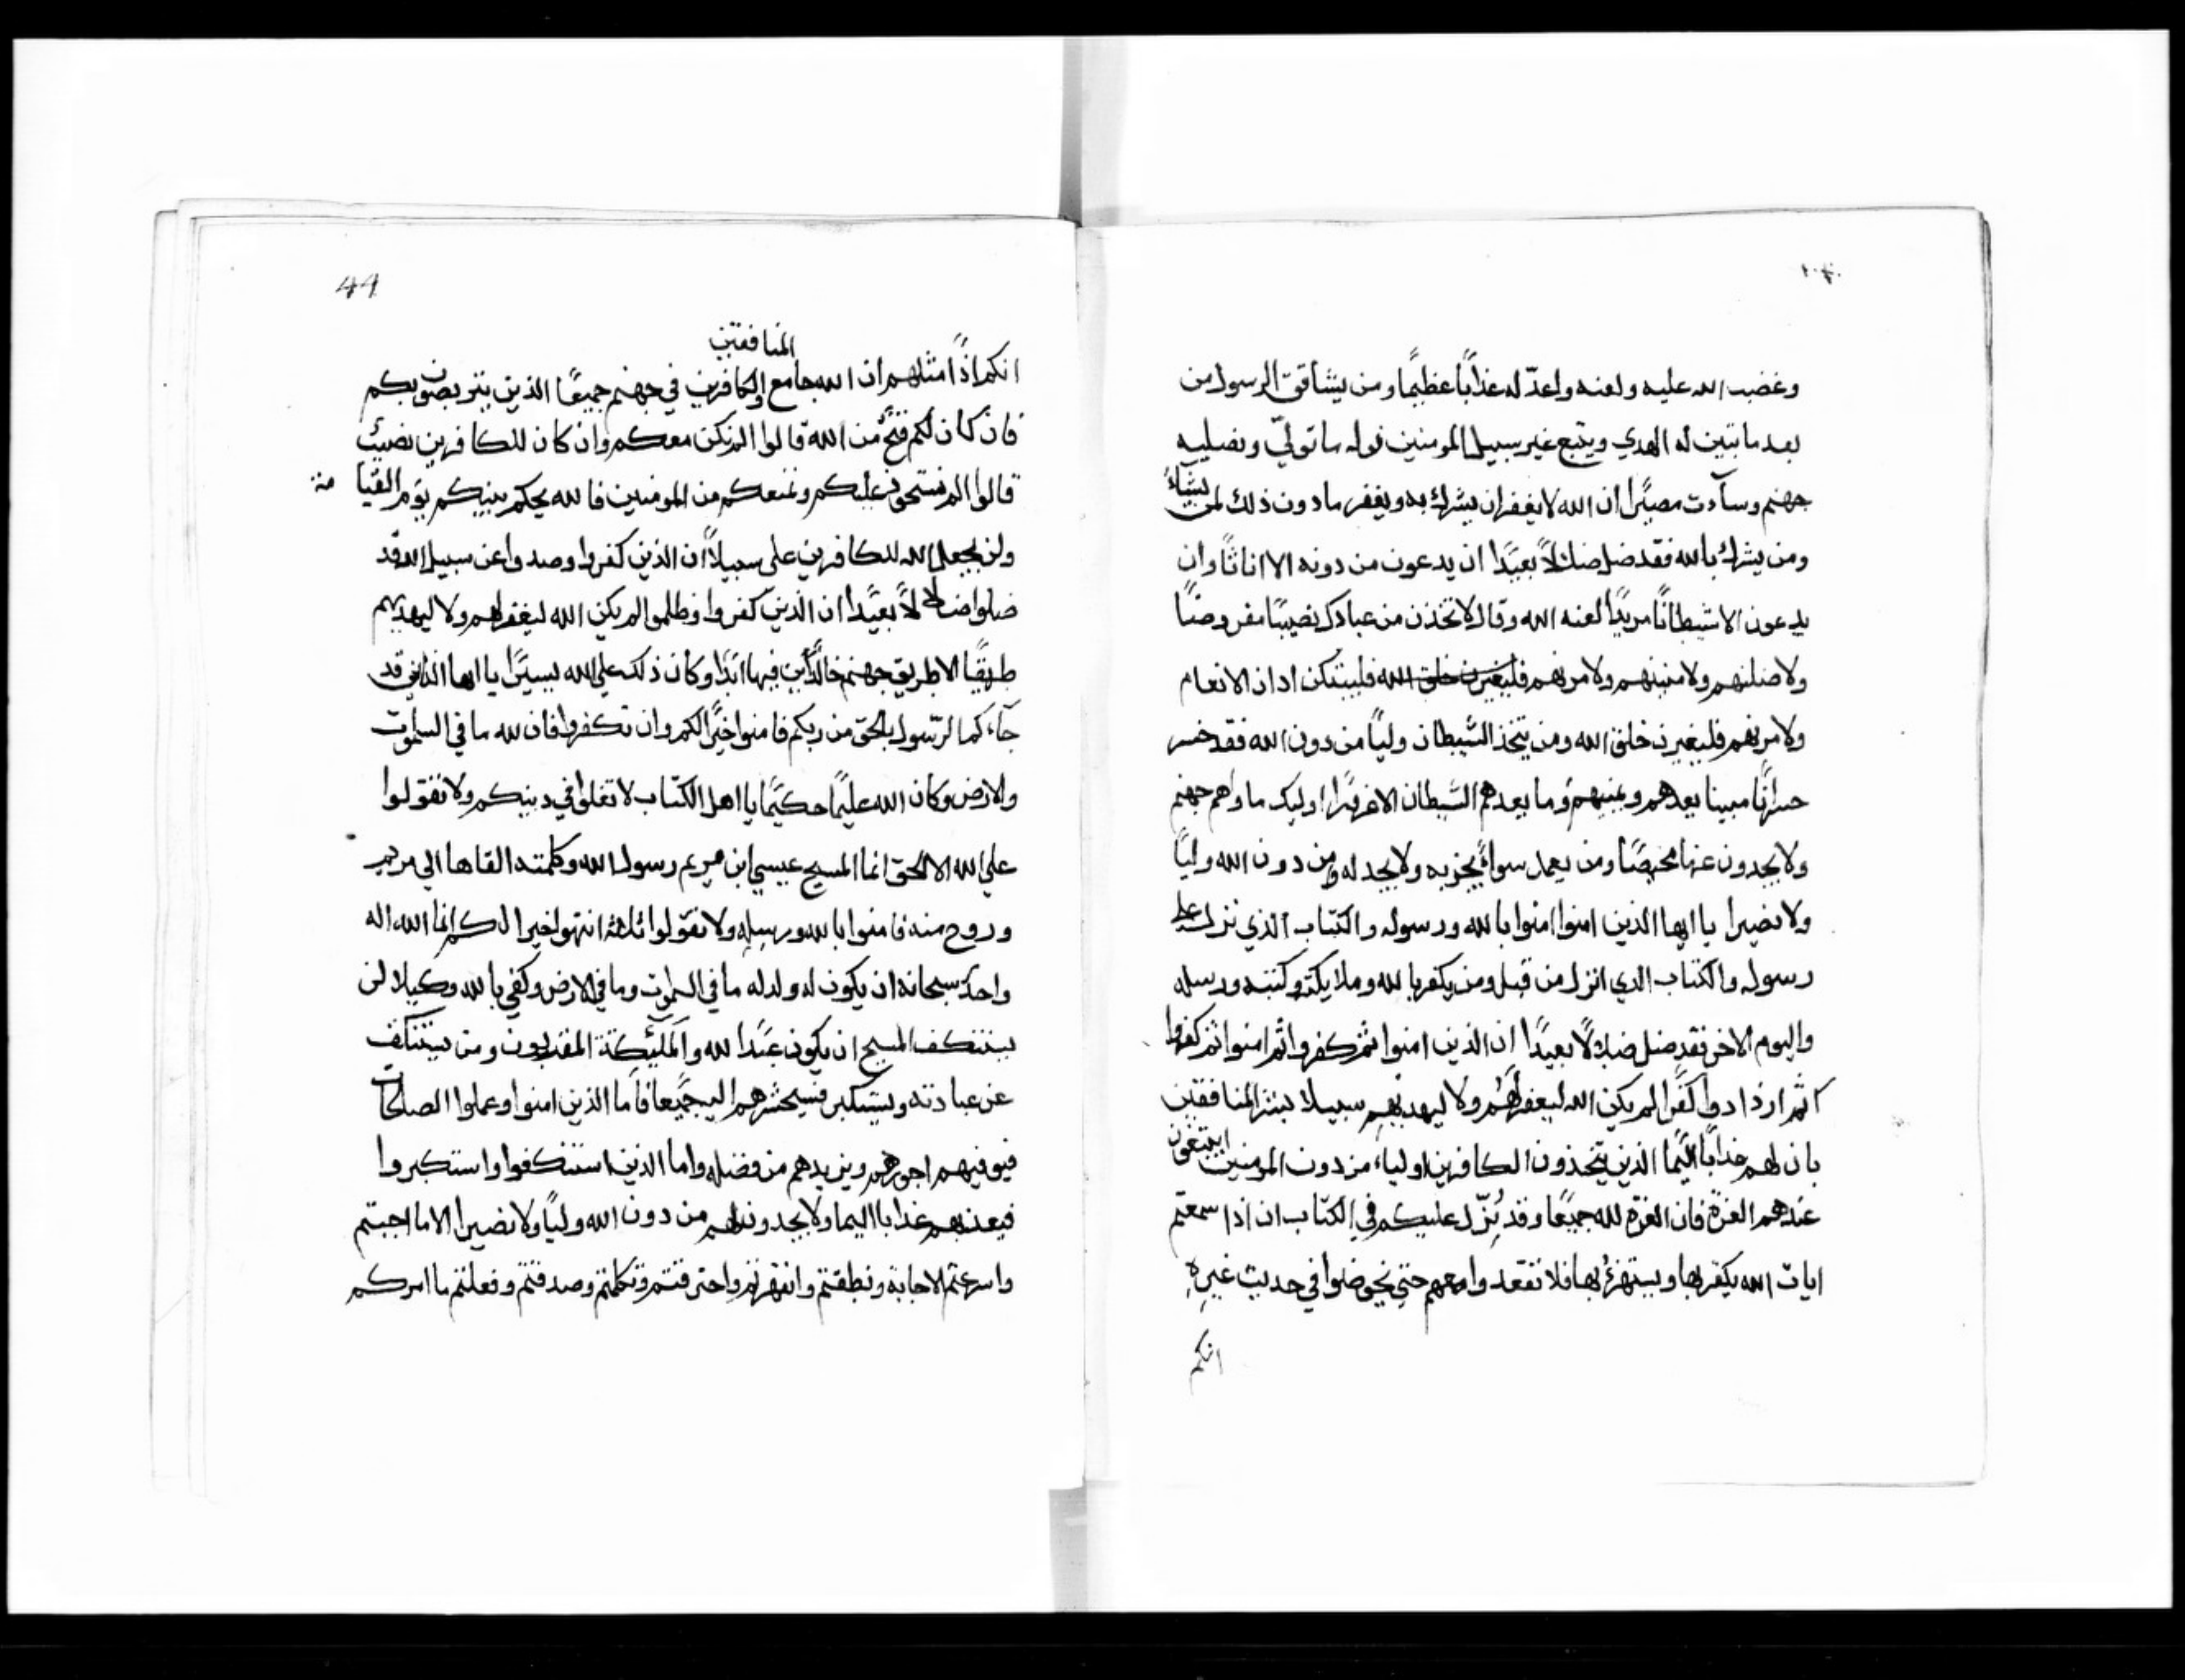 وغضب الله عليه ولعنه واعدّ له عذابًا عظيمًا ومن يشاقق الرسول من
بعد ما تبين له الهدي ويتبع غير سبيل المومنين نوله ما تولّي ونصليه
جهنم وسآءت مصيرًا ان الله لا يغفر ان يشرك به ويغفر ما دون ذلك لمن يشاء
ومن يشرك بالله فقد ضل ضلالًا بعيدًا ان يدعون من دونه الا اناثًا وان
يدعون الا شيطانًا مريدًا لعنه الله وقال لاتخذن من عبادك نصيبًا مفروضًا
ولاضلنهم ولامنينهم ولامرنهم فليغيرن خلق الله فليبتكن اذان الانعام
ولامرنهم فليغيرن خلق الله ومن يتخذ الشيطان وليًا من دون الله فقد خسر
خسرانًا مبينا يعدهم ويمنيهم وما يعدهم الشيطان الا غرورًا اوليك ماواهم جهنم
ولا يجدون عنها محيصًا ومن يعمل سواءً يجز به ولا يجد له من دون الله وليًا
ولا نصيرا يا ايها الذين امنوا امنوا بالله ورسوله والكتاب الذي نزل علي
رسوله والكتاب الذي انزل من قبل ومن يكفر بالله وملايكته وكتبه ورسله
واليوم الاخر فقد ضل ضلالًا بعيدًا ان الذين امنوا ثم كفروا ثم امنوا ثم كفروا
ثم ازدادوا كفرًا لم يكن الله ليغفر لهم ولا ليهديهم سبيلا بشر المنافقين
بان لهم عذابًا اليمًا الذين يتخذون الكافرين اولياء من دون المومنين ايبتغون
عندهم العزة فان العزة لله جميعًا وقد نزّل عليكم في الكتاب ان اذا سمعتم
ايات الله يكفر بها ويستهزئ بها فلا تقعدوا معهم حتي يخوضوا في حديث غيره
انكم
44
المنافقين
انكم اذًا مثلهم ان الله جامع والكافرين في جهنم جميعًا الذين يتربصون بكم
فان كان لكم فتح من الله قالوا الم نكن معكم وان كان للكافرين نصيب
قالوا الم نستحوذ عليكم ونمنعكم من المومنين فالله يحكم بينكم يوم القيامة
ولن يجعل الله للكافرين علي سبيلًا ان الذين كفروا وصدوا عن سبيل الله قد
ضلوا ضلالًا بعيدًا ان الذين كفروا وظلموا لم يكن الله ليغفر لهم ولا ليهديهم
طريقًا الا طريق جهنم خالدين فيها ابدًا وكان ذلك علي الله يسيرًا يا ايها الناس قد
جآءكم الرسول بالحق من ربكم فامنوا خيرًا لكم وان تكفروا فان لله ما في السموت
والارض وكان الله عليمًا حكيمًا يا اهل الكتاب لا تغلوا في دينكم ولا تقولوا
علي الله الا الحق انما المسيح عيسي ابن مريم رسول الله وكلمته القاها الي مريم
وروح منه فامنوا بالله ورسله ولا تقولوا ثلثة انتهوا خيرا لكم انما الله اله
واحد سبحانه ان يكون له ولد له ما في السموت وما في الارض وكفي بالله وكيلا لن
يستنكف المسيح ان يكون عبدًا لله والمليكة المقربون ومن يستنكف
عن عبادته ويستكبر فسيحشرهم اليه جميعا فاما الذين امنوا وعملوا الصلحات
فيوفيهم اجورهم ويزيدهم من فضله واما الذين استنكفوا واستكبروا
فيعذبهم عذابا اليما ولا يجدون لهم من دون الله وليًا ولا نصيرا الا ما اجبتم
واسرعتم الاجابة ونطقتم وتكلمتم وصدقتم وفعلتم ما امركم